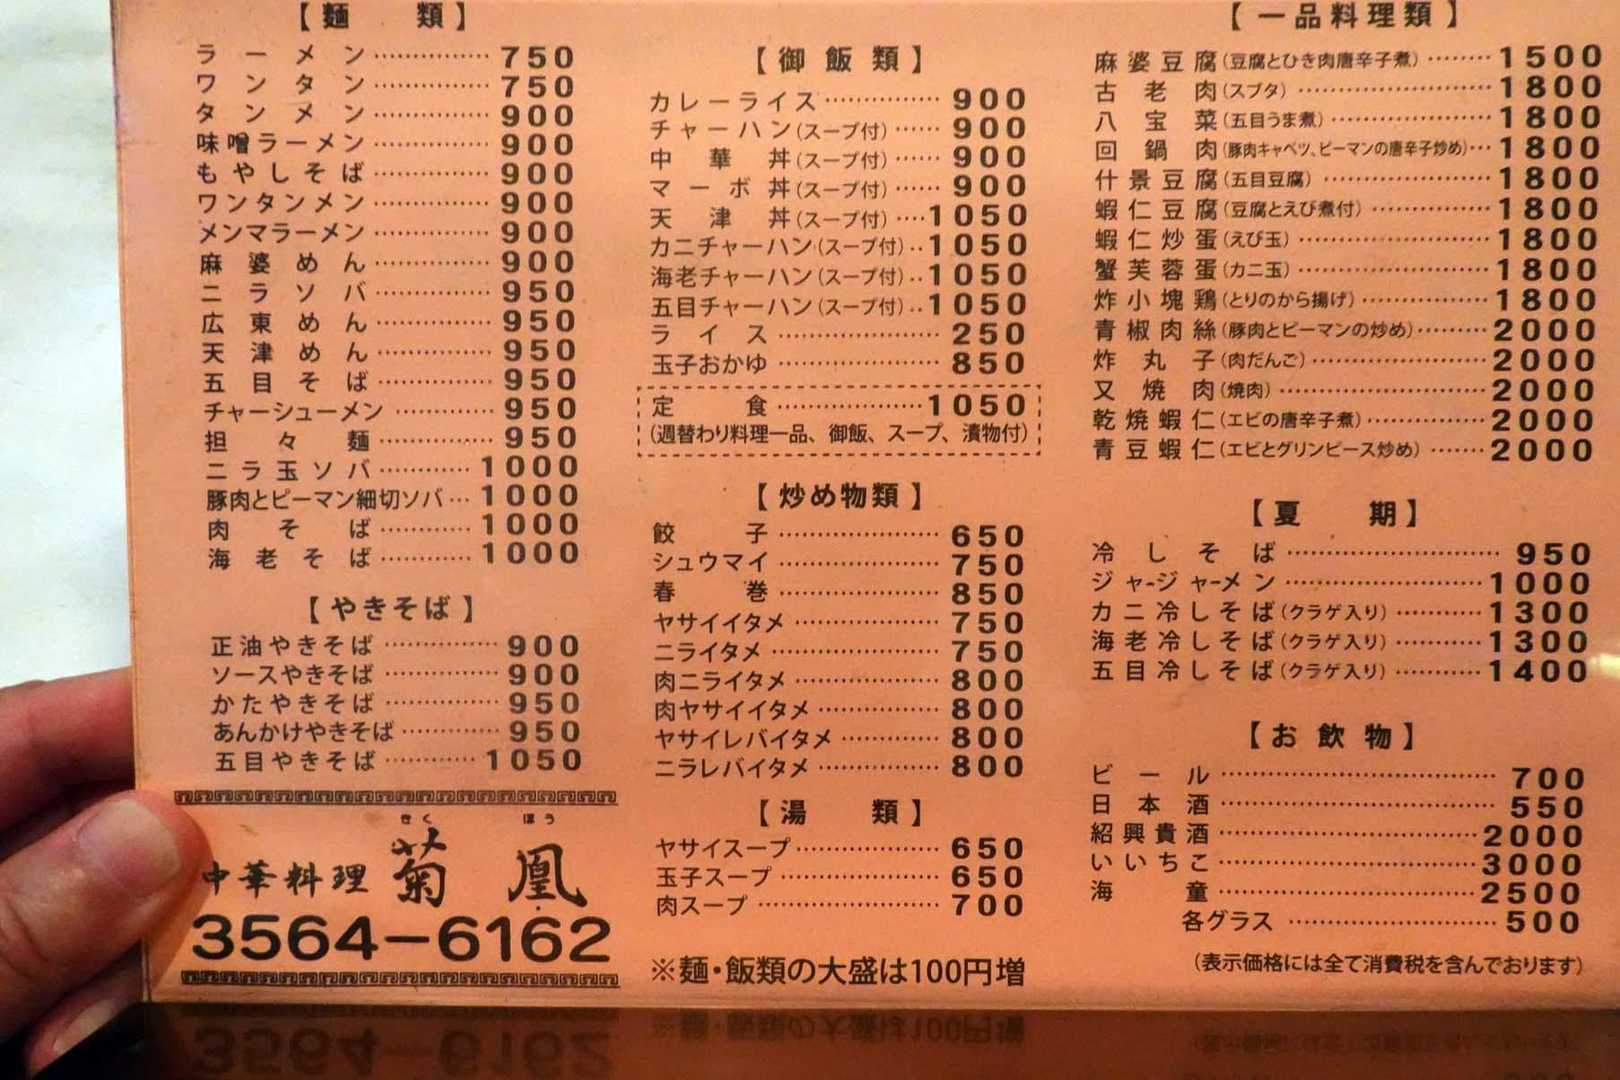 【麺　類】
ラーメン 750
ワンタン 750
タンメン 900
味噌ラーメン 900
もやしそば 900
ワンタンメン 900
メンマラーメン 900
麻婆めん 900
ニラソバ 950
広東めん 950
天津めん 950
五目そば 950
チャーシューメン 950
担々麺 950
ニラ玉ソバ 1000
豚肉とピーマン細切ソバ 1000
肉そば 1000
海老そば 1000
【やきそば】
正油やきそば 900
ソースやきそば 900
かたやきそば 950
あんかけやきそば 950
五目やきそば 1050
きく ほう
中華料理 菊凰
3564-6162
【御飯類】
カレーライス 900
チャーハン(スープ付) 900
中華丼(スープ付) 900
マーボ丼(スープ付) 900
天津丼(スープ付) 1050
カニチャーハン(スープ付) 1050
海老チャーハン(スープ付) 1050
五目チャーハン(スープ付) 1050
ライス 250
玉子おかゆ 850
定食 1050
(週替わり料理一品、御飯、スープ、漬物付)
【炒め物類】
餃子 650
シュウマイ 750
春巻 850
ヤサイイタメ 750
ニライタメ 750
肉ニライタメ 800
肉ヤサイイタメ 800
ヤサイレバイタメ 800
ニラレバイタメ 800
【湯　類】
ヤサイスープ 650
玉子スープ 650
肉スープ 700
※麺・飯類の大盛は100円増
【一品料理類】
麻婆豆腐(豆腐とひき肉唐辛子煮) 1500
古老肉(スブタ) 1800
八宝菜(五目うま煮) 1800
回鍋肉(豚肉キャベツ、ピーマンの唐辛子炒め) 1800
什景豆腐(五目豆腐) 1800
蝦仁豆腐(豆腐とえび煮付) 1800
蝦仁炒蛋(えび玉) 1800
蟹芙蓉蛋(カニ玉) 1800
炸小塊鶏(とりのから揚げ) 1800
青椒肉絲(豚肉とピーマンの炒め) 2000
炸丸子(肉だんご) 2000
叉焼肉(焼肉) 2000
乾焼蝦仁(エビの唐辛子煮) 2000
青豆蝦仁(エビとグリンピース炒め) 2000
【夏　期】
冷しそば 950
ジャージャーメン 1000
カニ冷しそば(クラゲ入り) 1300
海老冷しそば(クラゲ入り) 1300
五目冷しそば(クラゲ入り) 1400
【お飲物】
ビール 700
日本酒 550
紹興貴酒 2000
いいちこ 3000
海童 2500
各グラス 500
(表示価格には全て消費税を含んでおります)